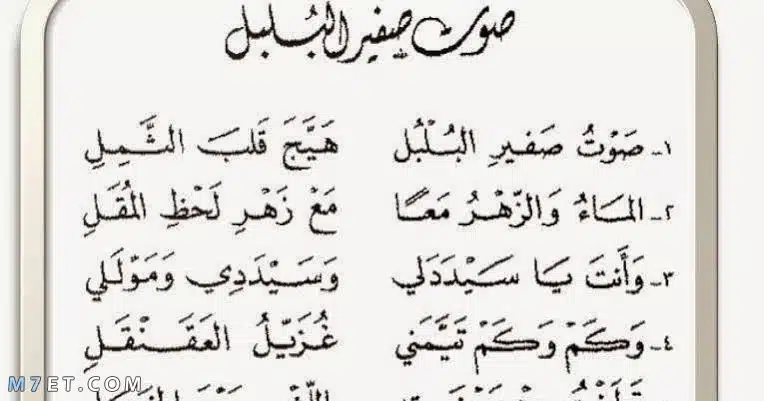 صوت صفير البلبل
١- صَوْتُ صَفيرِ البُلْبُلِ هَيَّجَ قَلبَ الثَّمِلِ
٢- المَاءُ وَالزَّهْرُ مَعًا مَعْ زَهْرِ لَحْظِ المُقَلِ
٣- وَأَنتَ يَا سَيْدَدَلي وَسَيْدَدِي وَمَوْلَلي
٤- وَكَمْ وَكَمْ تَيَّمَني غُزَيّلُ العَقَنْقَلِ
M7ET.COM